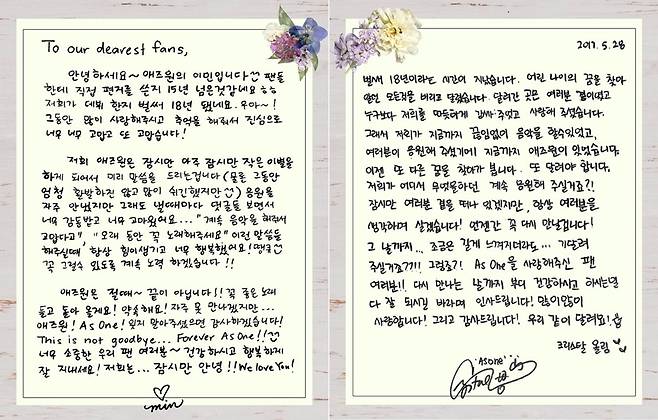 To our dearest fans,
안녕하세요~ 애즈원의 이민입니다 팬들
한테 직접 편지를 쓴지 15년 넘은것같네요 ㅎㅎ
저희가 데뷔 한지 벌써 18년 됐네요. 우아~!
그동안 많이 사랑해주시고 추억을 해줘서 진심으로
너무 너무 고맙고 또 고맙습니다!
저희 애즈원은 잠시만 아주 잠시만 작은 이별을
하게 되어서 미리 말씀을 드리는겁니다 (물론 그동안
엄청 활발하진 않고 많이 쉬긴했지만) 음원을
자주 안냈지만 그래도 낼때마다 댓글을 보면서
너무 감동받고 너무 고마웠어요... "계속 음악을 해줘서
고맙다고" "오래 동안 꼭 노래해주세요" 이런 말씀들
해주실때 항상 힘이생기고 너무 행복했어요! 땡큐
꼭 그럴수 있도록 계속 노력 하겠습니다!!
애즈원은 절때~ 끝이 아닙니다!! 꼭 좋은노래
들고 돌아 올게요! 약속해요! 자주 못 만나겠지만...
애즈원! As One! 잊지 말아주셨으면 감사하겠습니다!
This is not goodbye... Forever As One!!
너무 소중한 우리 팬 여러분~ 건강하시고 행복하게
잘 지내세요! 저희는... 잠시만 안녕!! We love You!
min
2017. 5. 28
벌써 18년이라는 시간이 지났습니다. 어린 나이의 꿈을 찾아
모든것을 버리고 달렸습니다. 달려간 곳은 여러분 곁이었고
누구보다 저희를 따뜻하게 감싸주었고 사랑해 주셨습니다.
그래서 저희가 지금까지 끊임없이 음악을 할수있었고,
여러분이 응원해 주셨기에 지금까지 애즈원이 있었습니다.
이젠 또 다른 꿈을 찾아가 봅니다. 또 달려야 합니다.
저희가 어디서 무엇을하던 계속 응원해 주실거죠?!
잠시만 여러분 곁을 떠나 있겠지만, 항상 여러분을
생각하며 살겠습니다! 언젠간 꼭 다시 만날겁니다!
그 날까지... 조금은 길게 느껴지더라도... 기다려
주실거죠??!! 그럼요?! As One을 사랑해주신 팬
여러분!! 다시 만나는 날까지 부디 건강하시고 하시는일
다 잘 되시길 바라며 인사드립니다! 많이많이
사랑합니다! 그리고 감사드립니다! 우리 같이 달려요!
크리스탈 올림
As One